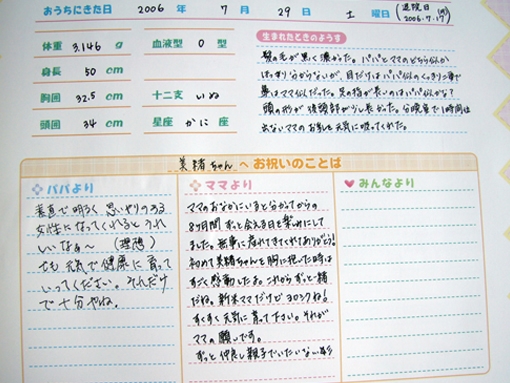 おうちにきた日 2006年 7月 29日 土曜日 (退院日 2006.7.17(月))
体重 3,146 g 血液型 O 型
身長 50 cm
胸囲 32.5 cm 十二支 いぬ
頭囲 34 cm 星座 かに座
生まれたときのようす
髪の毛が黒く濃かった。パパとママのどちら似か
はっきり分からないが、目だけはパパ似のくっきり二重で
鼻はママ似だった。足の指が長いのはパパ似かな?
頭の形が後頭部が少し長かった。分娩室で1時間位
出ないママのお乳を元気に吸ってくれた。
美緒ちゃんへお祝いのことば
パパより
素直で明るく思いやりのある
女性になってくれるとうれ
しいなぁ〜 (理想)
でも元気で健康に育って
いってください。それだけ
で十分やね。
ママより
ママのおなかにいると分かってからの
8ヶ月間ずっと会える日を楽しみにして
ました。無事に産れてきてくれてありがとう!
初めて美緒ちゃんを胸に抱いた時は
すごく感動したよ。これからずっと一緒
だね。新米ママだけどヨロシクね!
すくすく元気に育て下さい。それが
ママの願いです。
ずっと仲良し親子でいたいな
みんなより